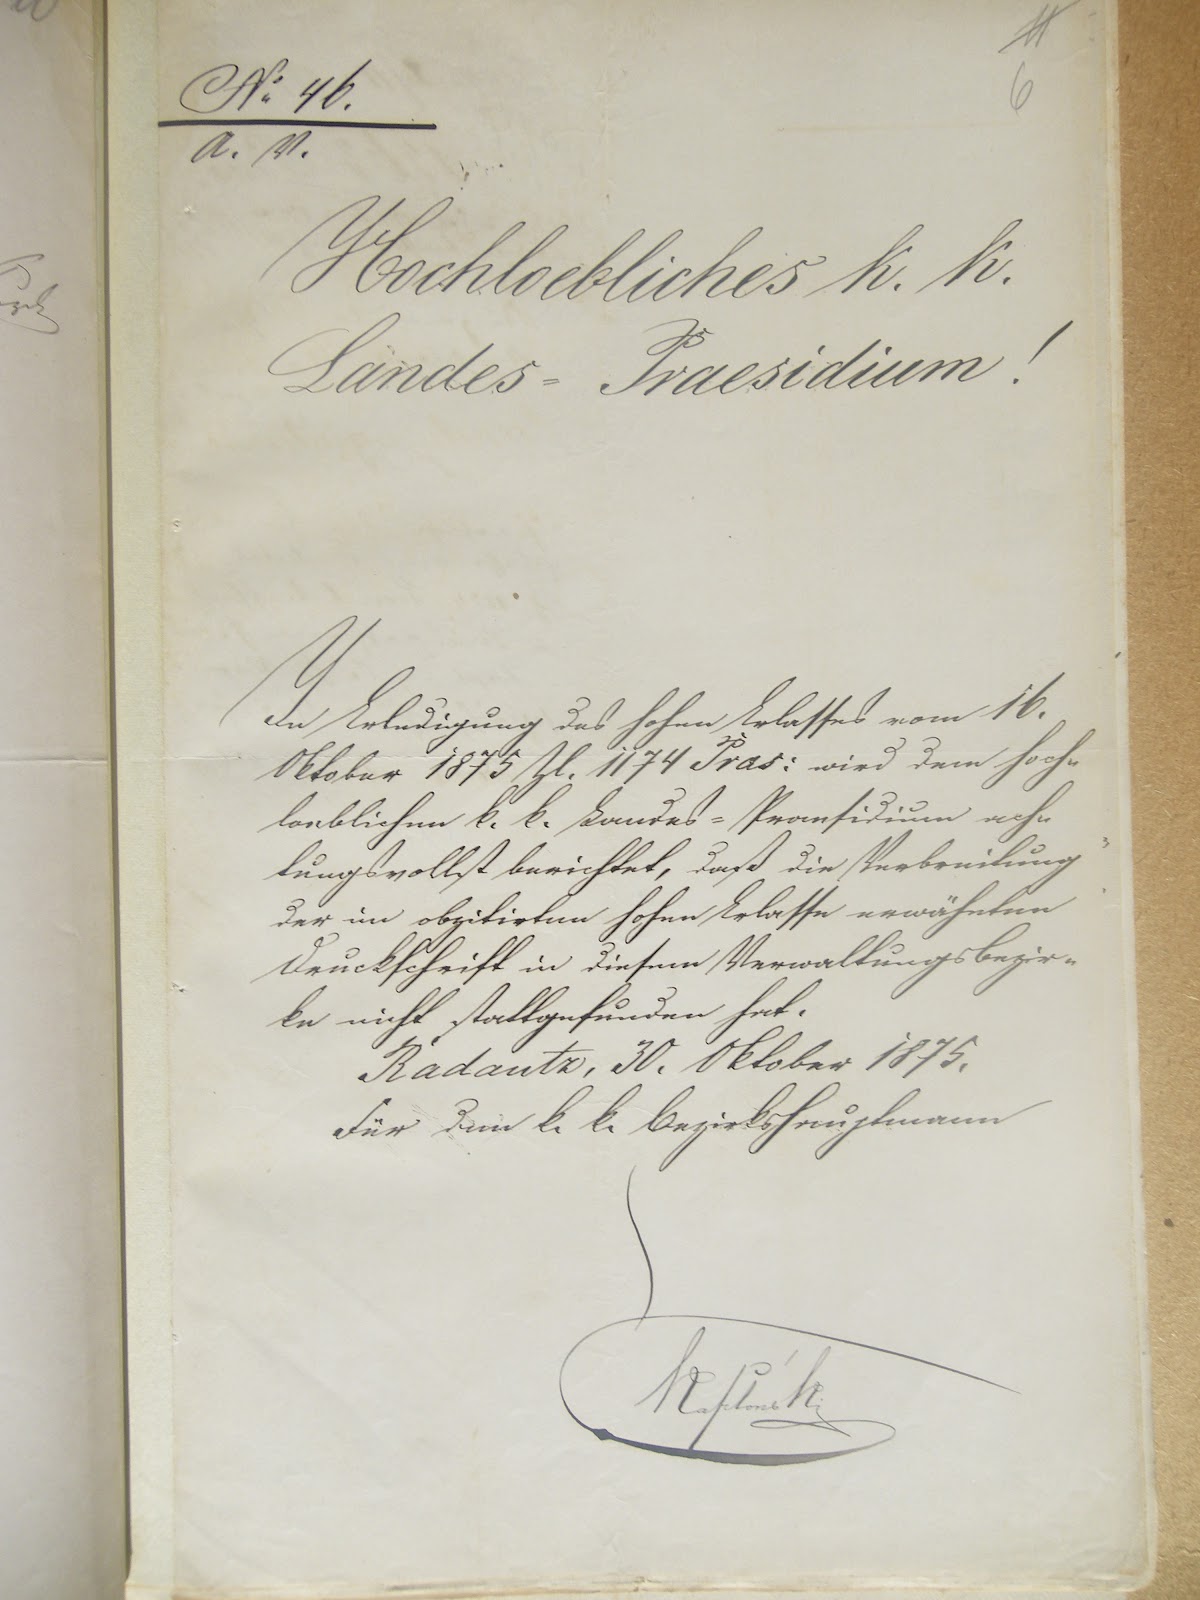 6
No 46.
A. V.
Hochloebliches k. k.
Landes= Praesidium!
In Erledigung des hohen Erlasses vom 16.
Oktober 1875 Zl. 1174 Pras: wird dem hoch=
loeblichen k. k. Landes= Praesidium ach=
tungsvollst berichtet, daß die Verbreitung
der im obzitirten hohen Erlasse erwähnten
Druckschrift in diesem Verwaltungsbezir=
ke nicht stattgefunden hat.
Radautz, 30. Oktober 1875.
Für den k. k. Bezirkshauptmann